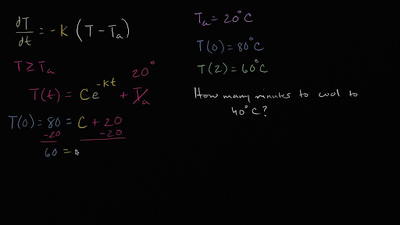 dT/dt = -K (T - Ta)
T ≥ Ta
20°
T(t) = Ce^-Kt + Ta
T(0) = 80 = C + 20
-20 -20
60 =
Ta = 20°C
T(0) = 80°C
T(2) = 60°C
How many minutes to cool to
40°C?